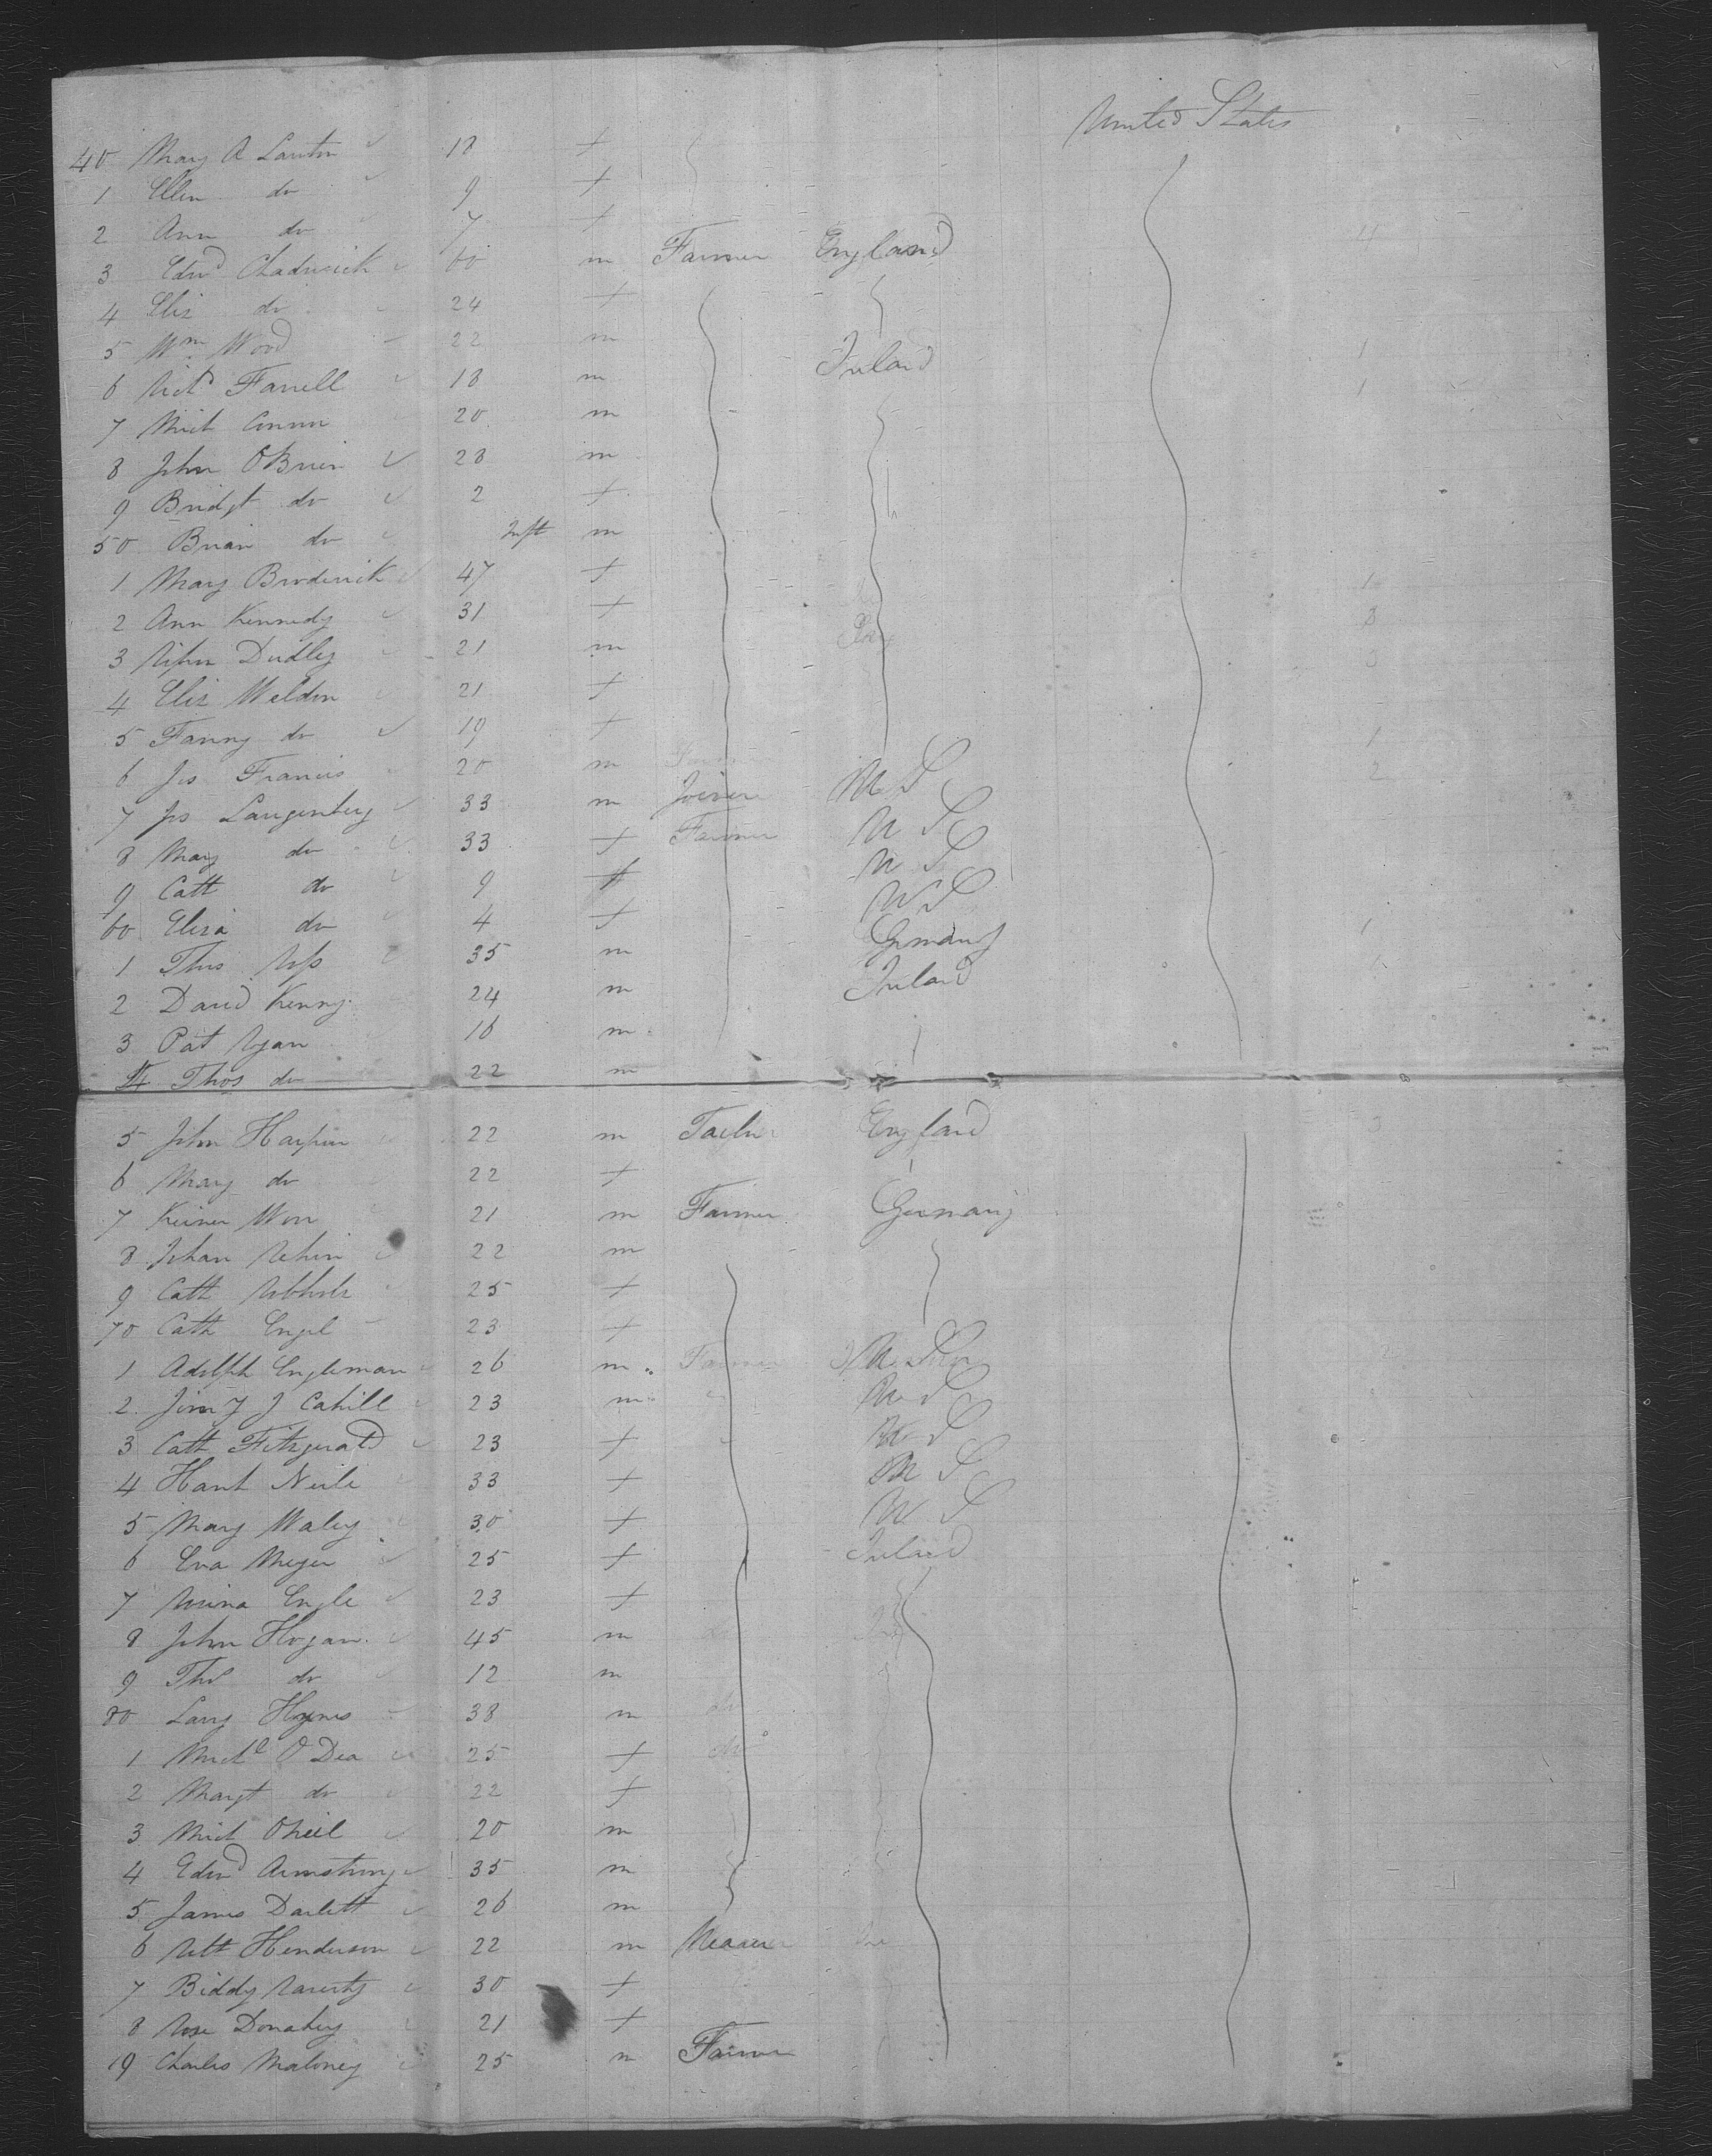 United States
40 Mary A Lawton 18 f
1 Ellen do 9 f
2 Ann do 7 f
3 Edwd Chadwick 60 m Farmer England
4 Eliz do 24 f
5 Wm Wood 22 m
6 Richd Farrell 18 m Ireland
7 Mich Connor 20 m
8 John O'Brien 28 m
9 Bridgt do 2 f
50 Brian do Inft m
1 Mary Broderick 47 f
2 Ann Kennedy 31 f
3 John Dudley 21 m
4 Eliz Weldon 21 f
5 Fanny do 19 f
6 Jas Francis 20 m
7 Jos Langenberg 33 m Joiner U S
8 Mary do 33 f Farmer U S
9 Cath do 9 f U S
60 Eliza do 4 f U S
1 Thos 35 m Germany
2 David Kenny 24 m Ireland
3 Pat Ryan 16 m
4 Thos do 22 m
5 John Harpur 22 m Taylor England
6 Mary do 22 f
7 Won 21 m Farmer Germany
8 Johan 22 m
9 Cath 25 f
70 Cath Engel 23 f
1 Adolph Engleman 26 m Farmer U S
2 J Cahill 23 m U S
3 Cath Fitzgerald 23 f U S
4 Hant Neile 33 f U S
5 Mary Waley 30 f U S
6 Eva Meyer 25 f Ireland
7 Mina Engle 23 f
8 John Hogan 45 m
9 Thos do 12 m
80 Lary Hynes 38 m
1 Michl O'Dea 25 f
2 Margt do 22 f
3 Mich O'Neil 20 m
4 Edwd Armstrong 35 m
5 James Darlett 26 m
6 Robt Henderson 22 m Weaver
7 Biddy 30 f
8 Rose Donahey 21 f
19 Charles Maloney 25 m Farmer